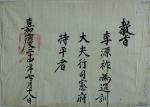 敎旨
李源祚爲通訓
大夫行司憲府
持平者
嘉慶二十四年七月十八日